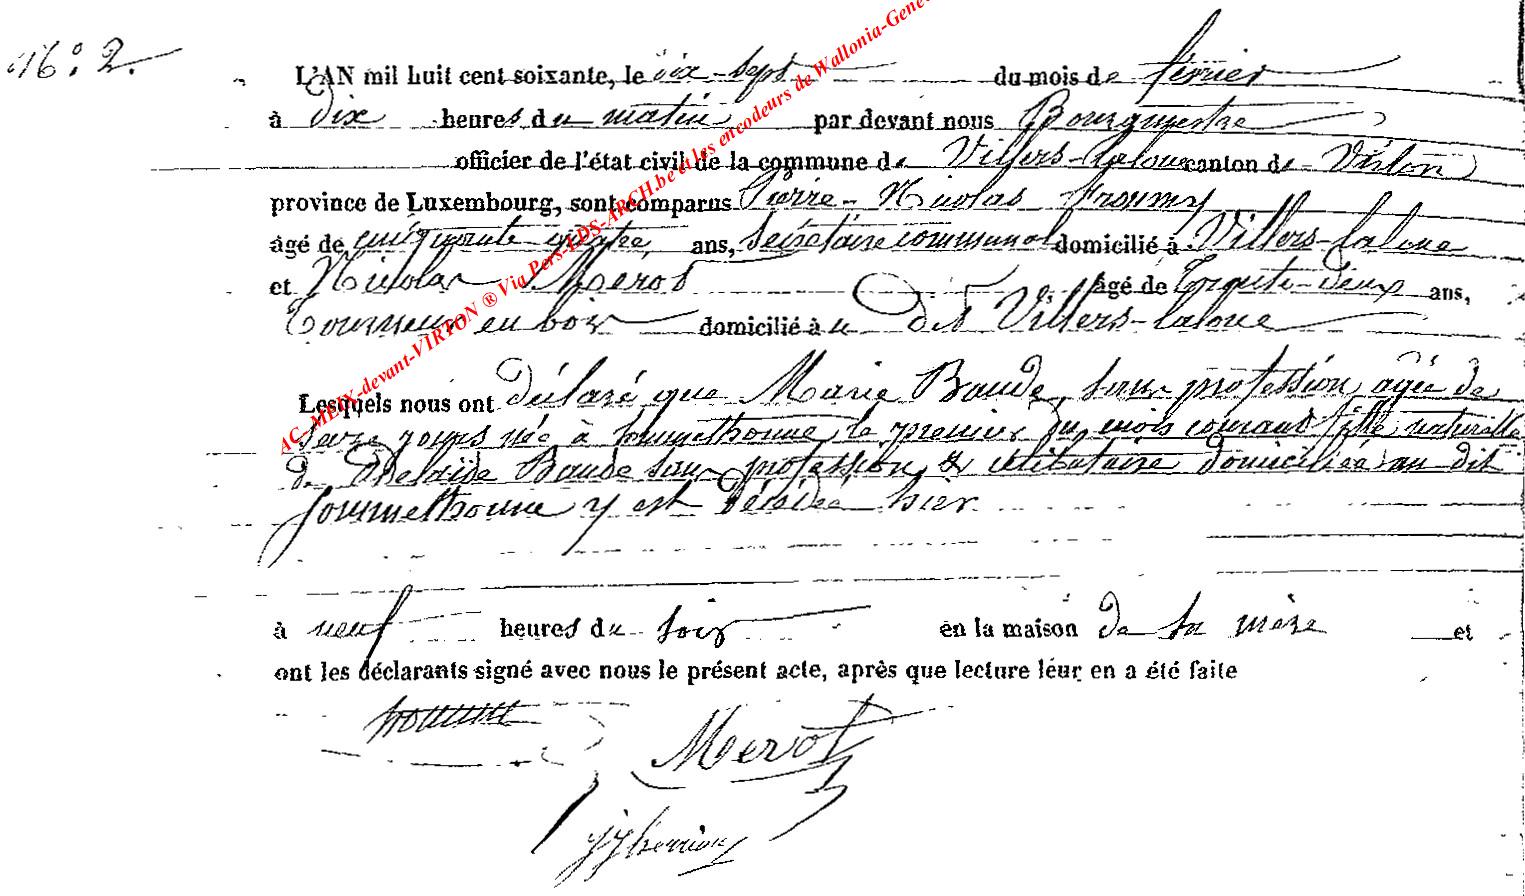 N° 2.
L'AN mil huit cent soixante, le dix-sept du mois de février
à dix heures du matin par devant nous Bourgmestre
officier de l'état civil de la commune de Villers-laloue canton de Virton
province de Luxembourg, sont comparus Pierre-Nicolas
âgé de cinquante quatre ans, secrétaire communal domicilié à Villers-laloue
et Nicolas Merot âgé de trente-deux ans,
Tourneur en bois domicilié à u dit Villers-laloue
Lesquels nous ont déclaré que Marie Baude, sans profession, agée de
seize jours née à hoummelhonne le premier du mois courant fille naturelle
de Adelaïde Baude sans profession, & célibataire domiciliée au dit
y est décédée hier
à neuf heures du soir en la maison de sa mère et
ont les déclarants signé avec nous le présent acte, après que lecture leur en a été faite
Merot
AC-MEIX-devant-VIRTON ® Via Pers-EDS-ARCH.be et les encodeurs de Wallonia-Gene